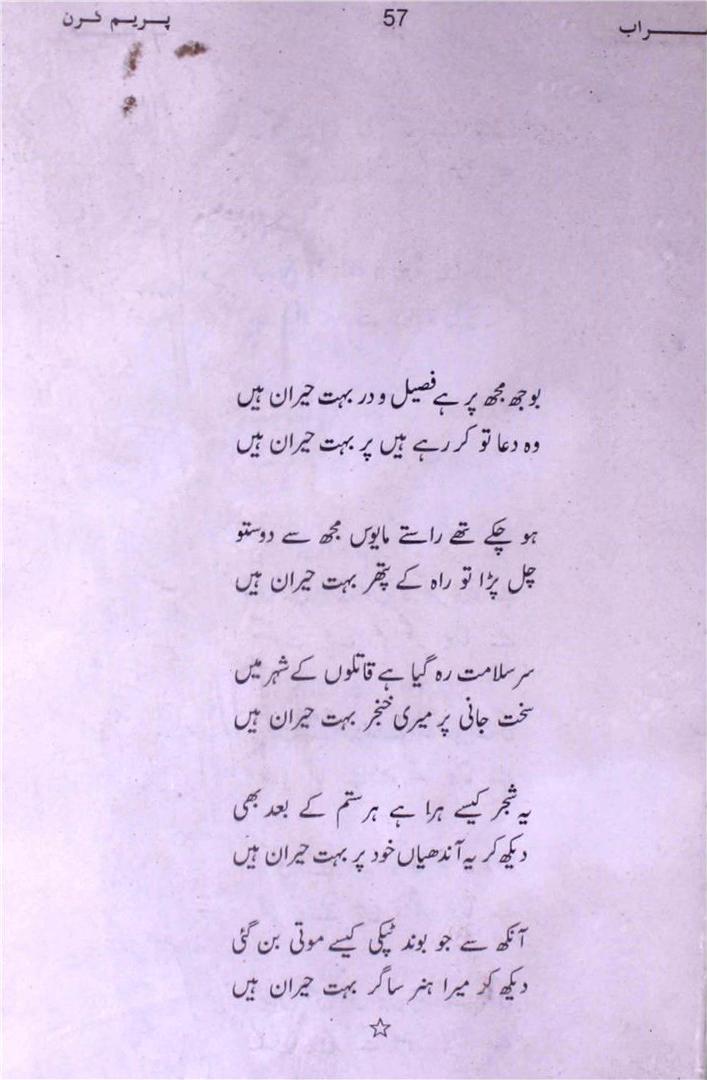 ـــراب 57 پریم کرن
بوجھ مجھ پر ہے فصیل و در بہت حیران ہیں
وہ دعا تو کر رہے ہیں پر بہت حیران ہیں
ہو چکے تھے راستے مایوس مجھ سے دوستو
چل پڑا تو راہ کے پتھر بہت حیران ہیں
سر سلامت رہ گیا ہے قاتلوں کے شہر میں
سخت جانی پر میری خنجر بہت حیران ہیں
یہ شجر کیسے ہرا ہے ہر ستم کے بعد بھی
دیکھ کر یہ آندھیاں خود پر بہت حیران ہیں
آنکھ سے جو بوند ٹپکی کیسے موتی بن گئی
دیکھ کر میرا ہنر ساگر بہت حیران ہیں